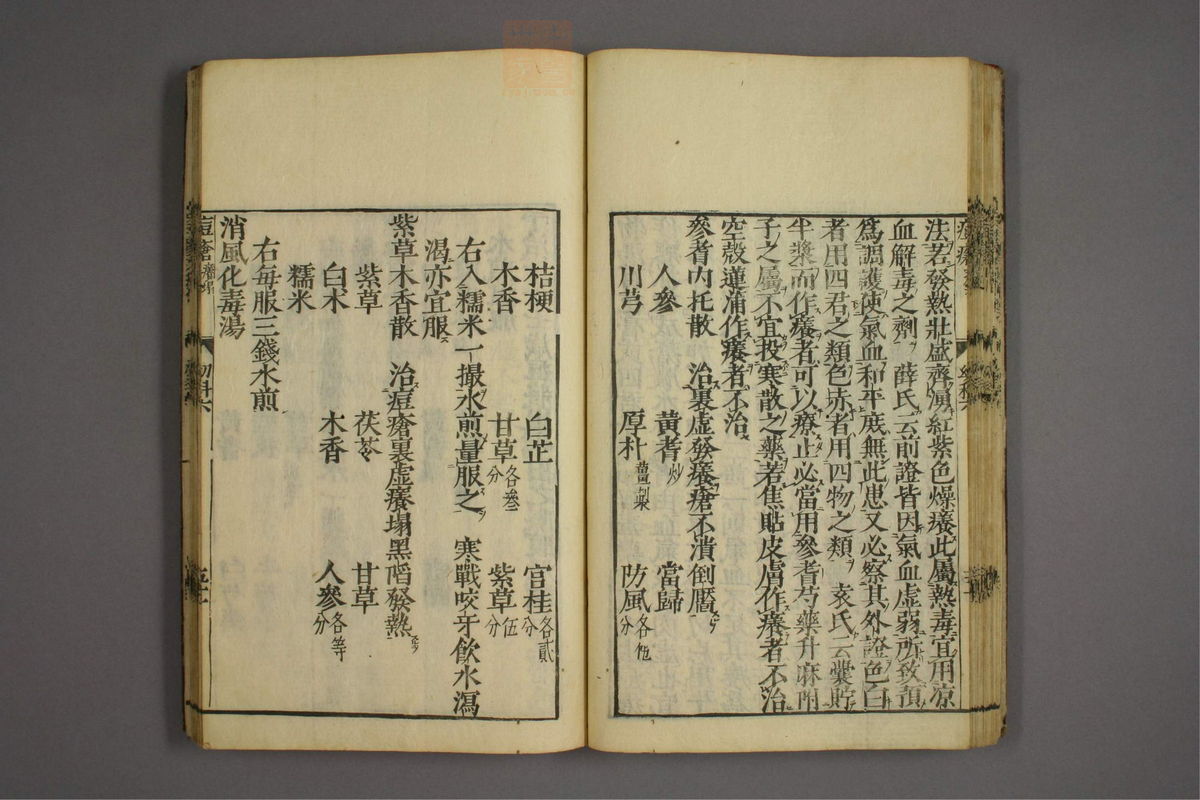 法若發熱壯盛齊湧紅紫色燥癢此屬熱毒宜用凉
血解毒之劑 薛氏云前證皆因氣血虛弱所致預
爲調護使氣血和平庶無此患又必察其外證色白
者用四君之類色赤者用四物之類 袁氏云囊貯
半漿而作癢者可以療止必當用參耆芍藥升麻附
子之屬不宜投寒散之藥若焦貼皮膚作癢者不治
空殼蓮蒲作癢者不治
參耆內托散 治裏虛發癢瘡不潰倒靨
人參 黃耆炒 當歸
川芎 厚朴薑製 防風各
桔梗 白芷 官桂各貳分
木香 甘草各叄分 紫草伍分
右入糯米一撮水煎量服之 寒戰咬牙飲水瀉
渴亦宜服
紫草木香散 治痘瘡裏虛癢塌黑陷發熱
紫草 茯苓 甘草
白朮 木香 人參各等分
糯米
右每服三錢水煎
消風化毒湯
痘瘡癢 幼科六